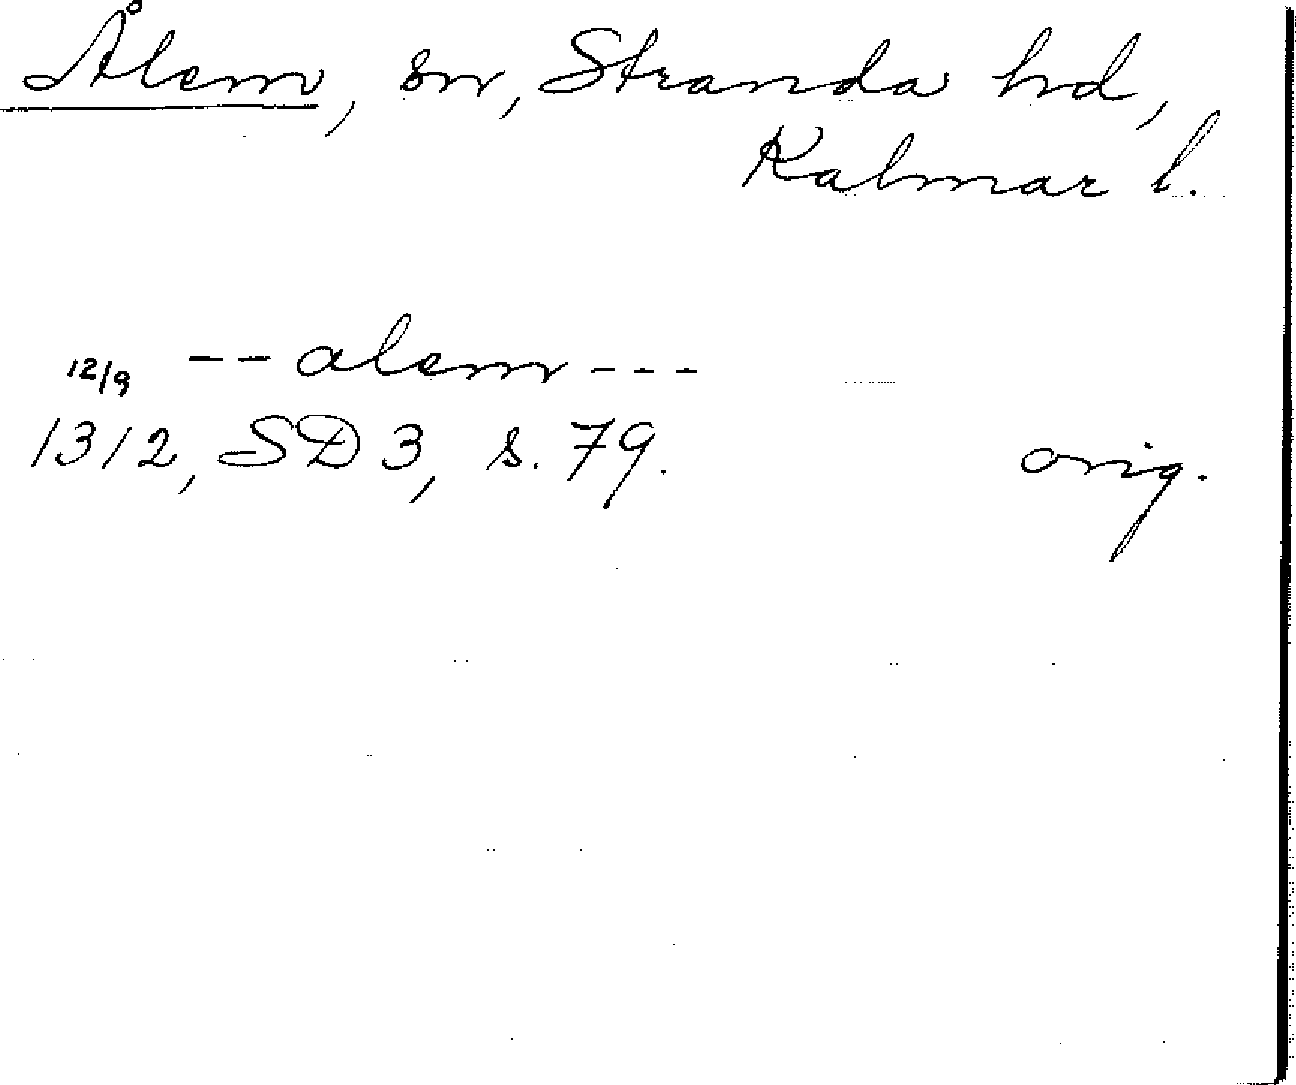 Ålem, sn, Stranda hd,
Kalmar l.
12/9 -- alem ---
1312, SD 3, s. 79. orig.